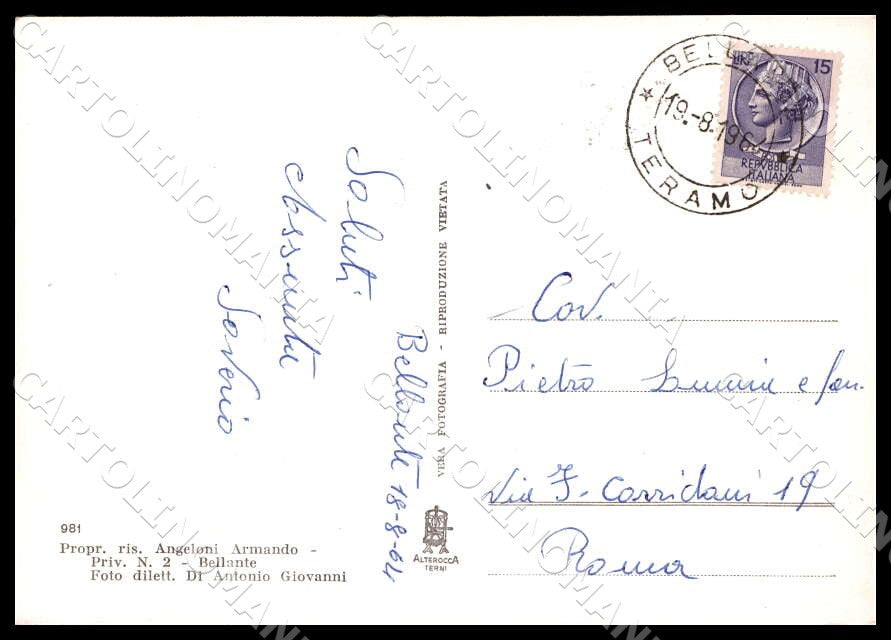 Saluti
Assanti
Saverio
Bellante 18-8-64
VERA FOTOGRAFIA - RIPRODUZIONE VIETATA
BELL
TERAMO
19.-8.1964
LIRE 15
REPVBBLICA
ITALIANA
Cav.
Pietro e fam.
Via F. Corridoni 19
Roma
981
Propr. ris. Angeloni Armando -
Priv. N. 2 - Bellante
Foto dilett. Di Antonio Giovanni
ALTEROCCA
TERNI
CARTOLINOMANIA
CARTOLINOMANIA
CARTOLINOMANIA
CARTOLINOMANIA
CARTOLINOMANIA
CARTOLINOMANIA